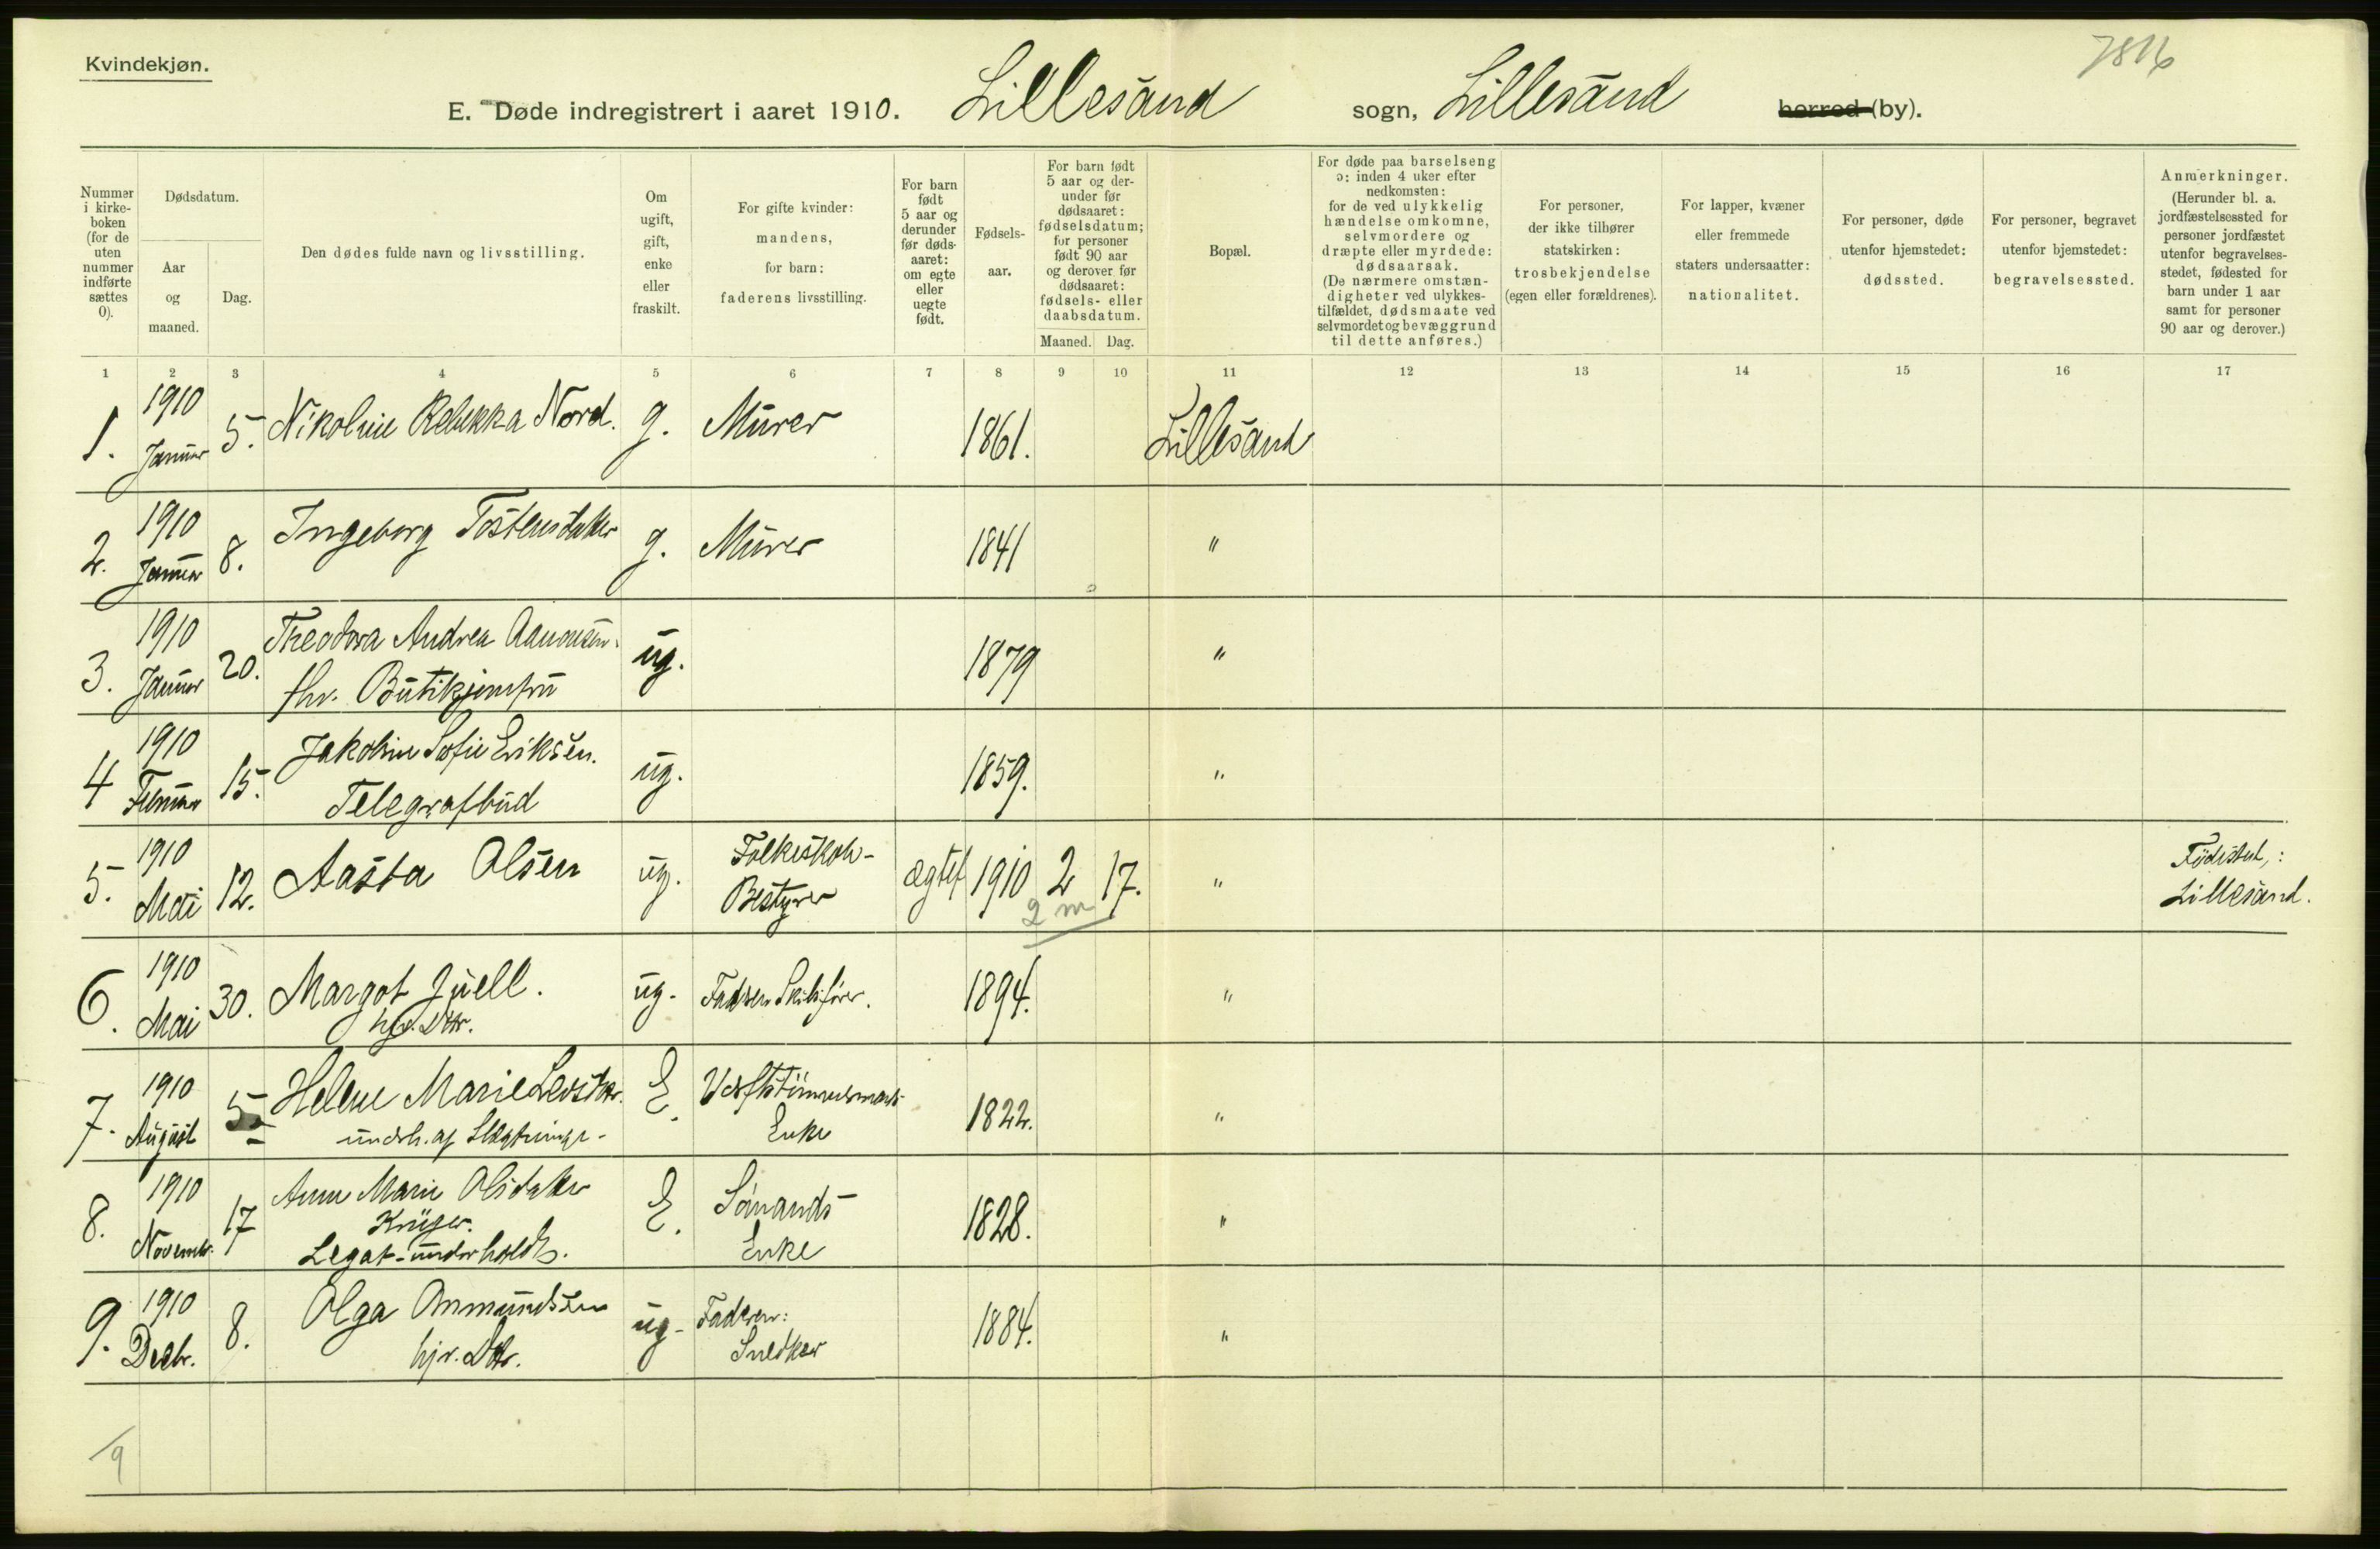 Kvindekjøn.
7816
E. Døde indregistrert i aaret 1910. Lillesand sogn, Lillesand herred (by).
Nummer i kirke-boken (for de uten nummer indførte sættes 0).
Dødsdatum.
Aar og maaned.
Dag.
Den dødes fulde navn og livsstilling.
Om ugift, gift, enke eller fraskilt.
For gifte kvinder: mandens, for barn: faderens livsstilling.
For barn født 5 aar og derunder før døds-aaret: om egte eller uegte født.
Fødsels-aar.
For barn født 5 aar og der-under før dødsaaret: fødselsdatum; for personer født 90 aar og derover før dødsaaret: fødsels- eller daabsdatum.
Maaned. Dag.
Bopæl.
For døde paa barselseng ɔ: inden 4 uker efter nedkomsten: for de ved ulykkelig hændelse omkomne, selvmordere og dræpte eller myrdede: dødsaarsak. (De nærmere omstæn-digheter ved ulykkes-tilfældet, dødsmaate ved selvmordet og bevæggrund til dette anføres.)
For personer, der ikke tilhører statskirken: trosbekjendelse (egen eller forældrenes).
For lapper, kvæner eller fremmede staters undersaatter: nationalitet.
For personer, døde utenfor hjemstedet: dødssted.
For personer, begravet utenfor hjemstedet: begravelsessted.
Anmerkninger. (Herunder bl. a. jordfæstelsessted for personer jordfæstet utenfor begravelses-stedet, fødested for barn under 1 aar samt for personer 90 aar og derover.)
1 2 3 4 5 6 7 8 9 10 11 12 13 14 15 16 17
1. 1910 Januar 5. Nikoline Rebekka Nord. g. Murer 1861. Lillesand
2. 1910 Januar 8. Ingeborg Tostensdatter g. Murer 1841 "
3. 1910 Januar 20. Theodora Andrea Aanonsen.
fhv. Butikjomfru ug. 1879 "
4 1910 Februar 15. Jakobine Sofie Eriksen.
Telegrafbud ug. 1859. "
5. 1910 Mai 12. Aasta Olsen ug. Folkeskole-
Bestyrer ægtef 1910 2 17. " Födested,:
Lillesand.
2 m
6. 1910 Mai 30. Margot Juell.
hjv. Dtr. ug. Faderen Skibsfører. 1894. "
7. 1910 August 5 Helene Marie
underh. af Slægtninge- E. Verftstömmermands
Enke 1822. "
8. 1910 Novembr. 17 Anne Marie Olsdatter
Krüger.
Legat-underholdt. E. Sömands
Enke 1828. "
9. 1910 Decbr. 8. Olga Ommundsen
hjv. Dtr. ug- Faderen:
Snedker 1884. "
9